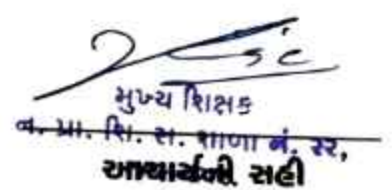 મુખ્ય શિક્ષક
ન. પ્રા. શિ. સ. શાળા નં. ૨૨,
આચાર્યની સહી